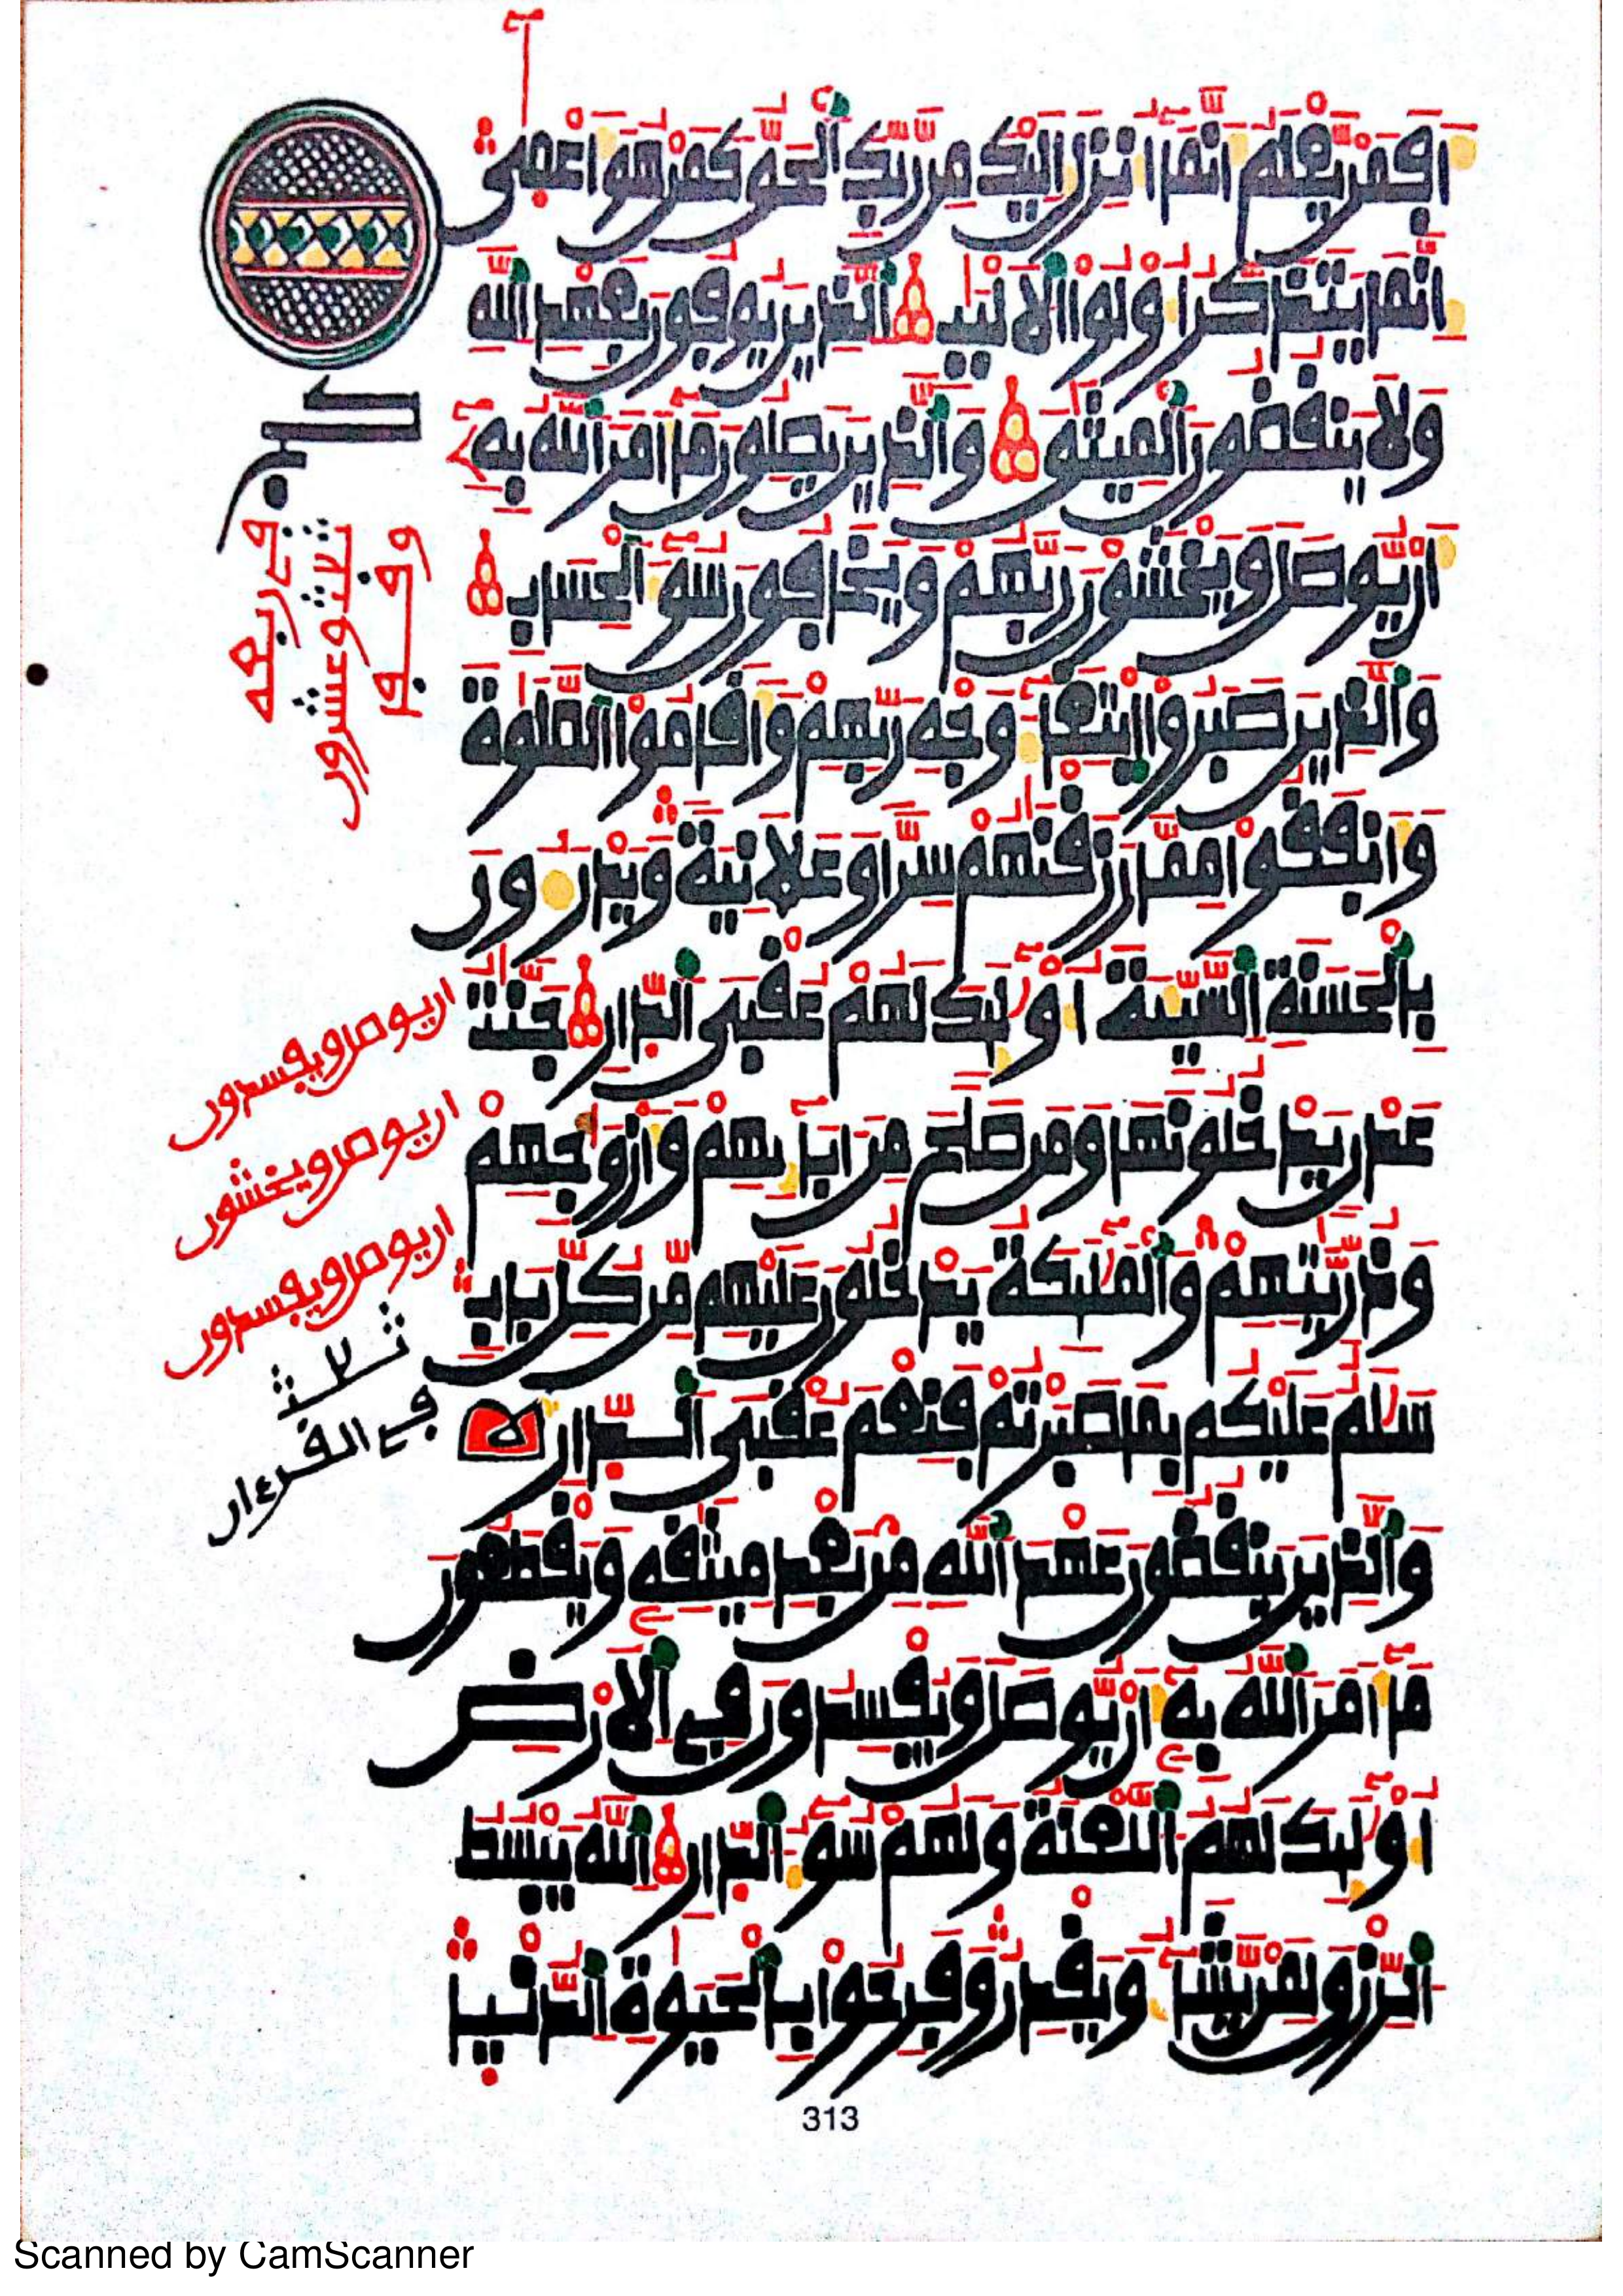 اَفَمَنْ يَّعْلَمُ اَنَّمَآ اُنزِلَ اِلَيْكَ مِن رَّبِّكَ اَ۬لْحَقُّ كَمَنْ هُوَ اَعْمٰىٓ
اِنَّمَا يَتَذَكَّرُ اُوْلُواْ اُ۬لَالْبَٰبِ اَ۬لذِينَ يُوفُونَ بِعَهْدِ اِ۬للَّهِ
وَلَا يَنقُضُونَ اَ۬لْمِيثَٰقَ وَالذِينَ يَصِلُونَ مَآ أَمَرَ اَ۬للَّهُ بِهِۦٓ
أَنْ يُّوصَلَ وَيَخْشَوْنَ رَبَّهُمْ وَيَخَافُونَ سُوٓءَ اَ۬لْحِسَابِ
وَالذِينَ صَبَرُواْ اُ۪بْتِغَآءَ وَجْهِ رَبِّهِمْ وَأَقَامُواْ اُ۬لصَّلَوٰةَ
وَأَنفَقُواْ مِمَّا رَزَقْنَٰهُمْ سِرّاً وَعَلَانِيَةً وَيَدْرَءُونَ
بِالْحَسَنَةِ اِ۬لسَّيِّئَةَ أُوْلَٰٓئِكَ لَهُمْ عُقْبَى اَ۬لدّ۪ارِ جَنَّٰتُ
عَدْنٍ يَدْخُلُونَهَا وَمَن صَلَحَ مِنَ اٰبَآئِهِمْ وَأَزْوَٰجِهِمْ
وَذُرِّيَّٰتِهِمْ وَالْمَلَٰٓئِكَةُ يَدْخُلُونَ عَلَيْهِم مِّن كُلِّ بَابٍ
سَلَٰمٌ عَلَيْكُم بِمَا صَبَرْتُمْ فَنِعْمَ عُقْبَى اَ۬لدّ۪ارِ
وَالذِينَ يَنقُضُونَ عَهْدَ اَ۬للَّهِ مِنۢ بَعْدِ مِيثَٰقِهِۦ وَيَقْطَعُونَ
مَآ أَمَرَ اَ۬للَّهُ بِهِۦٓ أَنْ يُّوصَلَ وَيُفْسِدُونَ فِي اِ۬لَارْضِ
أُوْلَٰٓئِكَ لَهُمُ اُ۬للَّعْنَةُ وَلَهُمْ سُوٓءُ اُ۬لدّ۪ارِ اِ۬للَّهُ يَبْسُطُ
اُ۬لرِّزْقَ لِمَنْ يَّشَآءُ وَيَقْدِرُ وَفَرِحُواْ بِالْحَيَوٰةِ اِ۬لدُّنْي۪ا
ان يوصل ويفسدون
ان يوصل ويخشون
ان يوصل ويفسدون
ثلث
في القرءان
313
Scanned by CamScanner